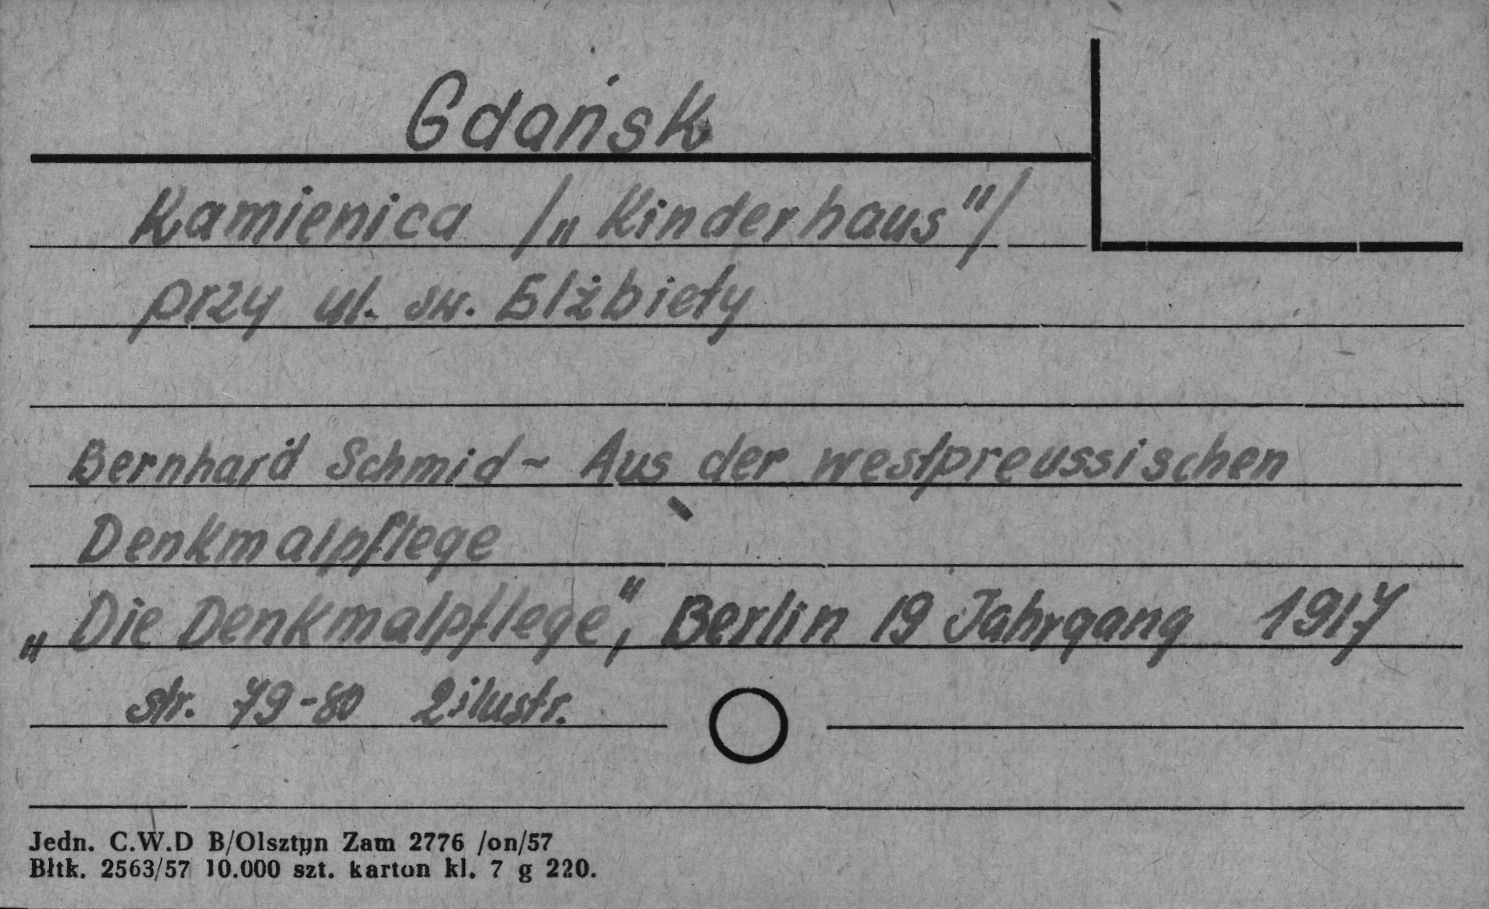 Gdańsk
Kamienica /„Kinderhaus"/
przy ul. św. Elżbiety
Bernhard Schmid - Aus der westpreussischen
Denkmalpflege
„Die Denkmalpflege", Berlin 19 Jahrgang 1917
str. 79-80 2 ilustr.
Jedn. C.W.D B/Olsztyn Zam 2776 /on/57
Błtk. 2563/57 10.000 szt. karton kl. 7 g 220.